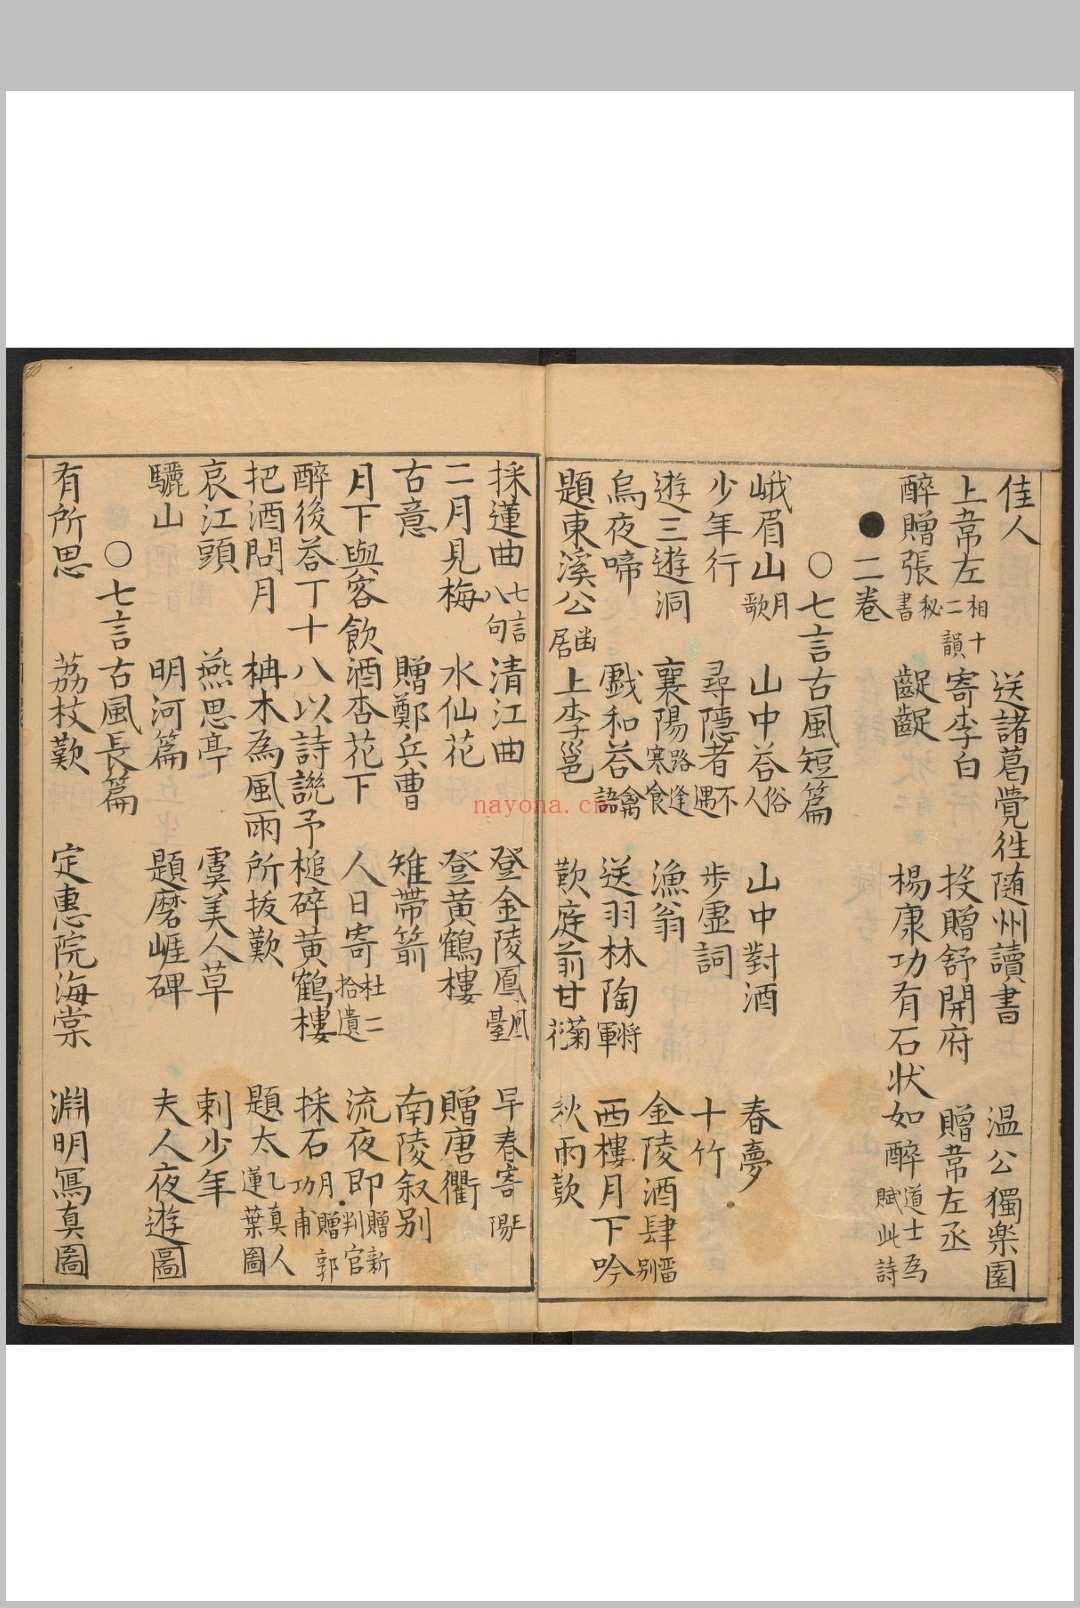 佳人 送諸葛覺徃随州讀書 温公獨樂園
上韋左相二十韻 寄李白 投贈舒開府 贈韋左丞
醉贈張秘書 齪齪 楊康功有石状如醉道士為賦此詩
●二卷
○七言古風短篇
峨眉山月歌 山中荅俗人 山中對酒 春夢
少年行 尋隱者不遇 步虛詞 十竹
遊三遊洞 襄陽路逢寒食 漁翁 金陵酒肆畱别
烏夜啼 戲和荅禽語 送羽林陶將軍 西樓月下吟
題東溪公幽居 上李邕 歎庭前甘菊花 秋雨歎
採蓮曲七言八句 清江曲 登金陵鳳凰臺 早春寄王陽
二月見梅 水仙花 登黄鶴樓 贈唐衢
古意 贈鄭兵曹 雉帶箭 南陵叙别
月下與客飲酒杏花下 人日寄杜二拾遺 流夜即贈新判官
醉後荅丁十八以詩譏予槌碎黄鶴樓 採石月贈郭功甫
把酒問月 柟木為風雨所拔歎 題太乙真人蓮葉圖
哀江頭 燕思亭 虞美人草 刺少年
驪山 明河篇 題磨崕碑 夫人夜遊圖
○七言古風長篇
有所思 荔枝歎 定惠院海棠 淵明寫真圖
nayona.cn